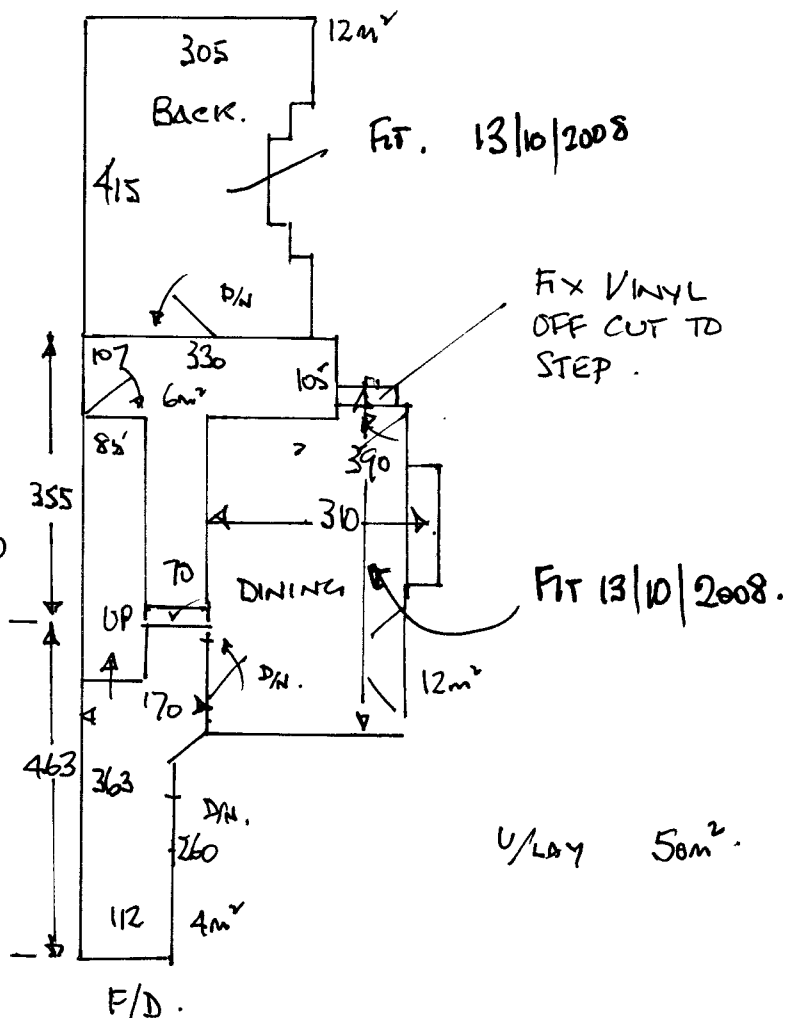 12m²
305
BACK.
FIT. 13/10/2008
415
D/N
FIX VINYL
OFF CUT TO
STEP.
107
330
105
6m²
85
390
355
310
70
DINING
FIT 13/10/2008.
UP
D/N.
170
12m²
463
363
D/N.
260
U/LAY 50m².
112
4m²
F/D.